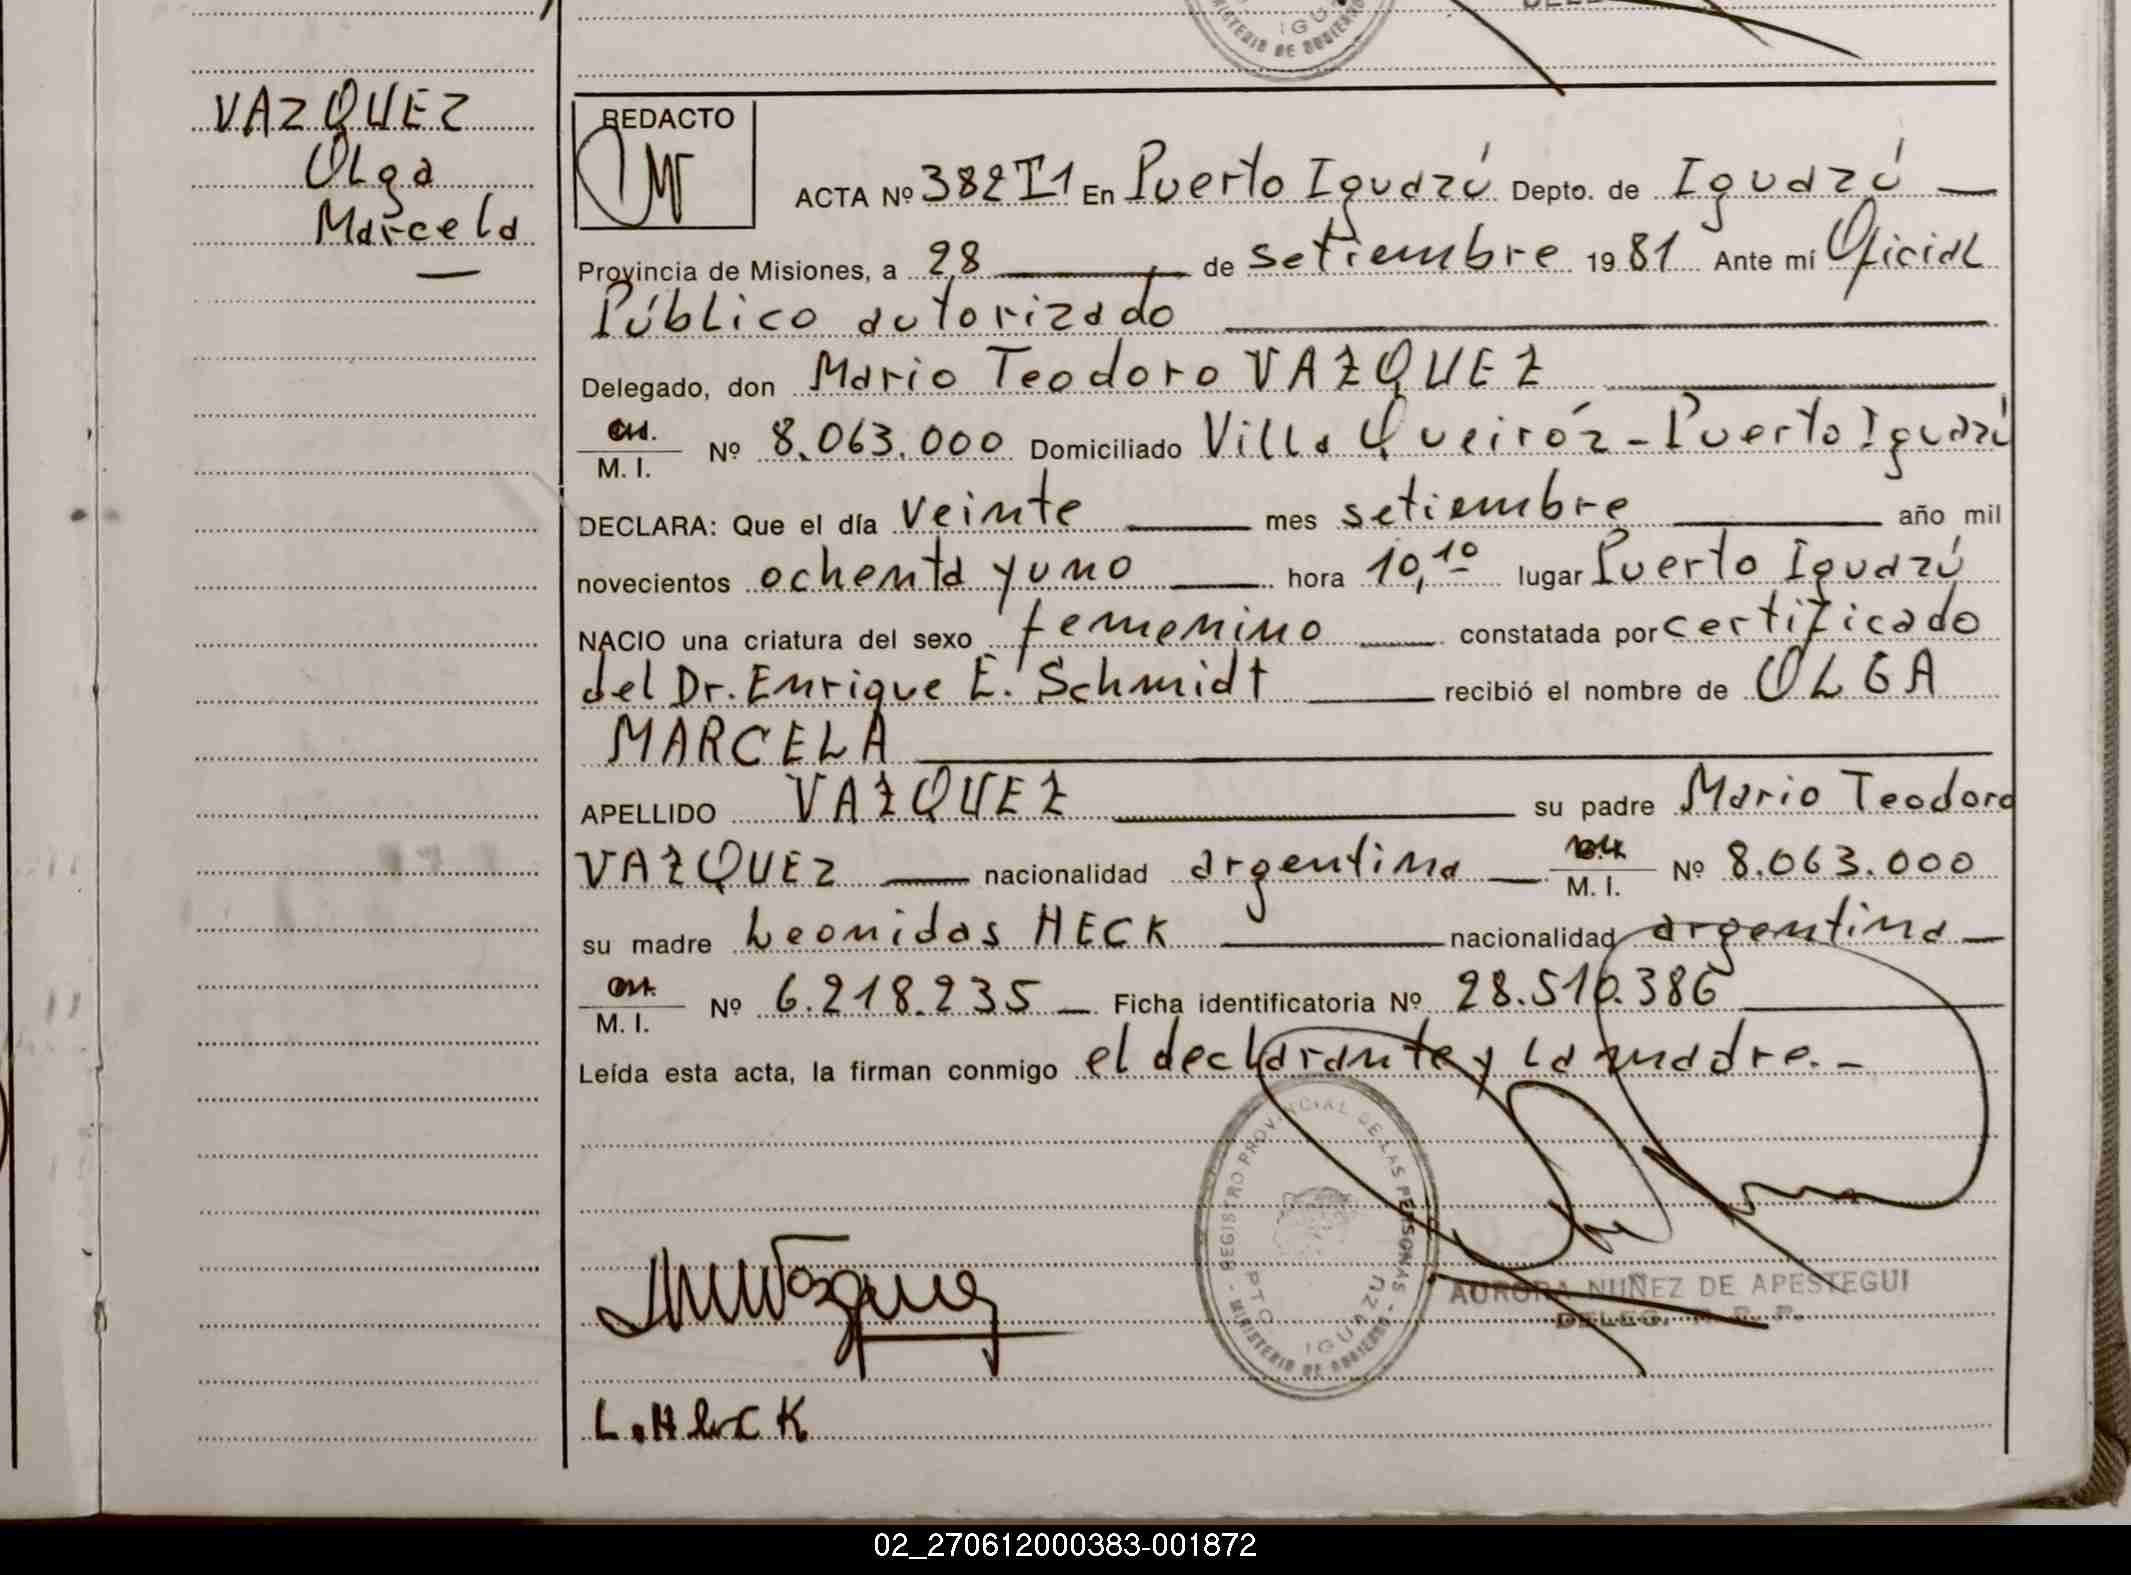 IGU
MINISTERIO DE GOBIERNO
VAZQUEZ
Olga
Marcela
REDACTO
ACTA Nº 382 T1 En Puerto Iguazú Depto. de Iguazú
Provincia de Misiones, a 28 de setiembre 1981 Ante mí Oficial
Público autorizado
Delegado, don Mario Teodoro VAZQUEZ
M. I. Nº 8.063.000 Domiciliado Villa Queiróz - Puerto Iguazú
DECLARA: Que el día veinte mes setiembre año mil
novecientos ochenta y uno hora 10,10 lugar Puerto Iguazú
NACIO una criatura del sexo femenino constatada por certificado
del Dr. Enrique E. Schmidt recibió el nombre de OLGA
MARCELA
APELLIDO VAZQUEZ su padre Mario Teodoro
VAZQUEZ nacionalidad argentina M. I. Nº 8.063.000
su madre Leonidas HECK nacionalidad argentina
M. I. Nº 6.218.235 Ficha identificatoria Nº 28.510.386
Leída esta acta, la firman conmigo el declarante y la madre.-
REGISTRO PROVINCIAL DE LAS PERSONAS - MINISTERIO DE GOBIERNO -
DPTO IGUAZU
AURORA NUÑEZ DE APESTEGUI
DELEG. R. P. P.
L. HECK
02_270612000383-001872